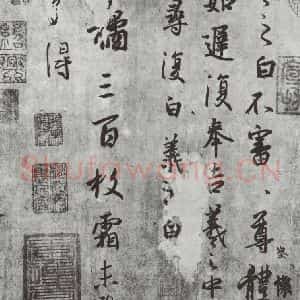 之白不審尊體
如遲復奉告羲之中
尋復白羲之白
橘三百枚霜未
多得
Shufawang.CN